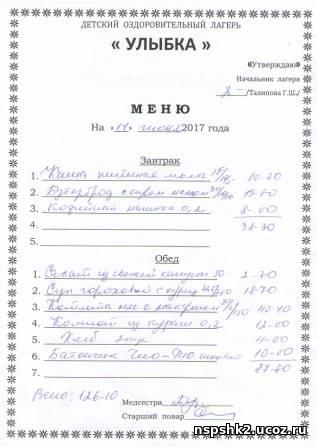 ДЕТСКИЙ ОЗДОРОВИТЕЛЬНЫЙ ЛАГЕРЬ
« УЛЫБКА »
«Утверждаю»
Начальник лагеря
/Галипова Г.Ш./
МЕНЮ
На «14» июня 2017 года
Завтрак
1. Каша пшённая мол 10-70
2. Бутерброд с сыром маслом
3. Кофейный напиток 0,2 8-00
4. 38-30
5.
Обед
1. Салат из свежей капусты 50 2-70
2. Суп гороховый с 18-70
3. Котлета мяс с макарон 40-40
4. Компот из кураги 0,2 12-00
5. Хлеб
6. Батончик Чио-Рио 10-00
7. 87-80
Всего: 126-10
Медсестра
Старший повар
nspshk2.ucoz.ru